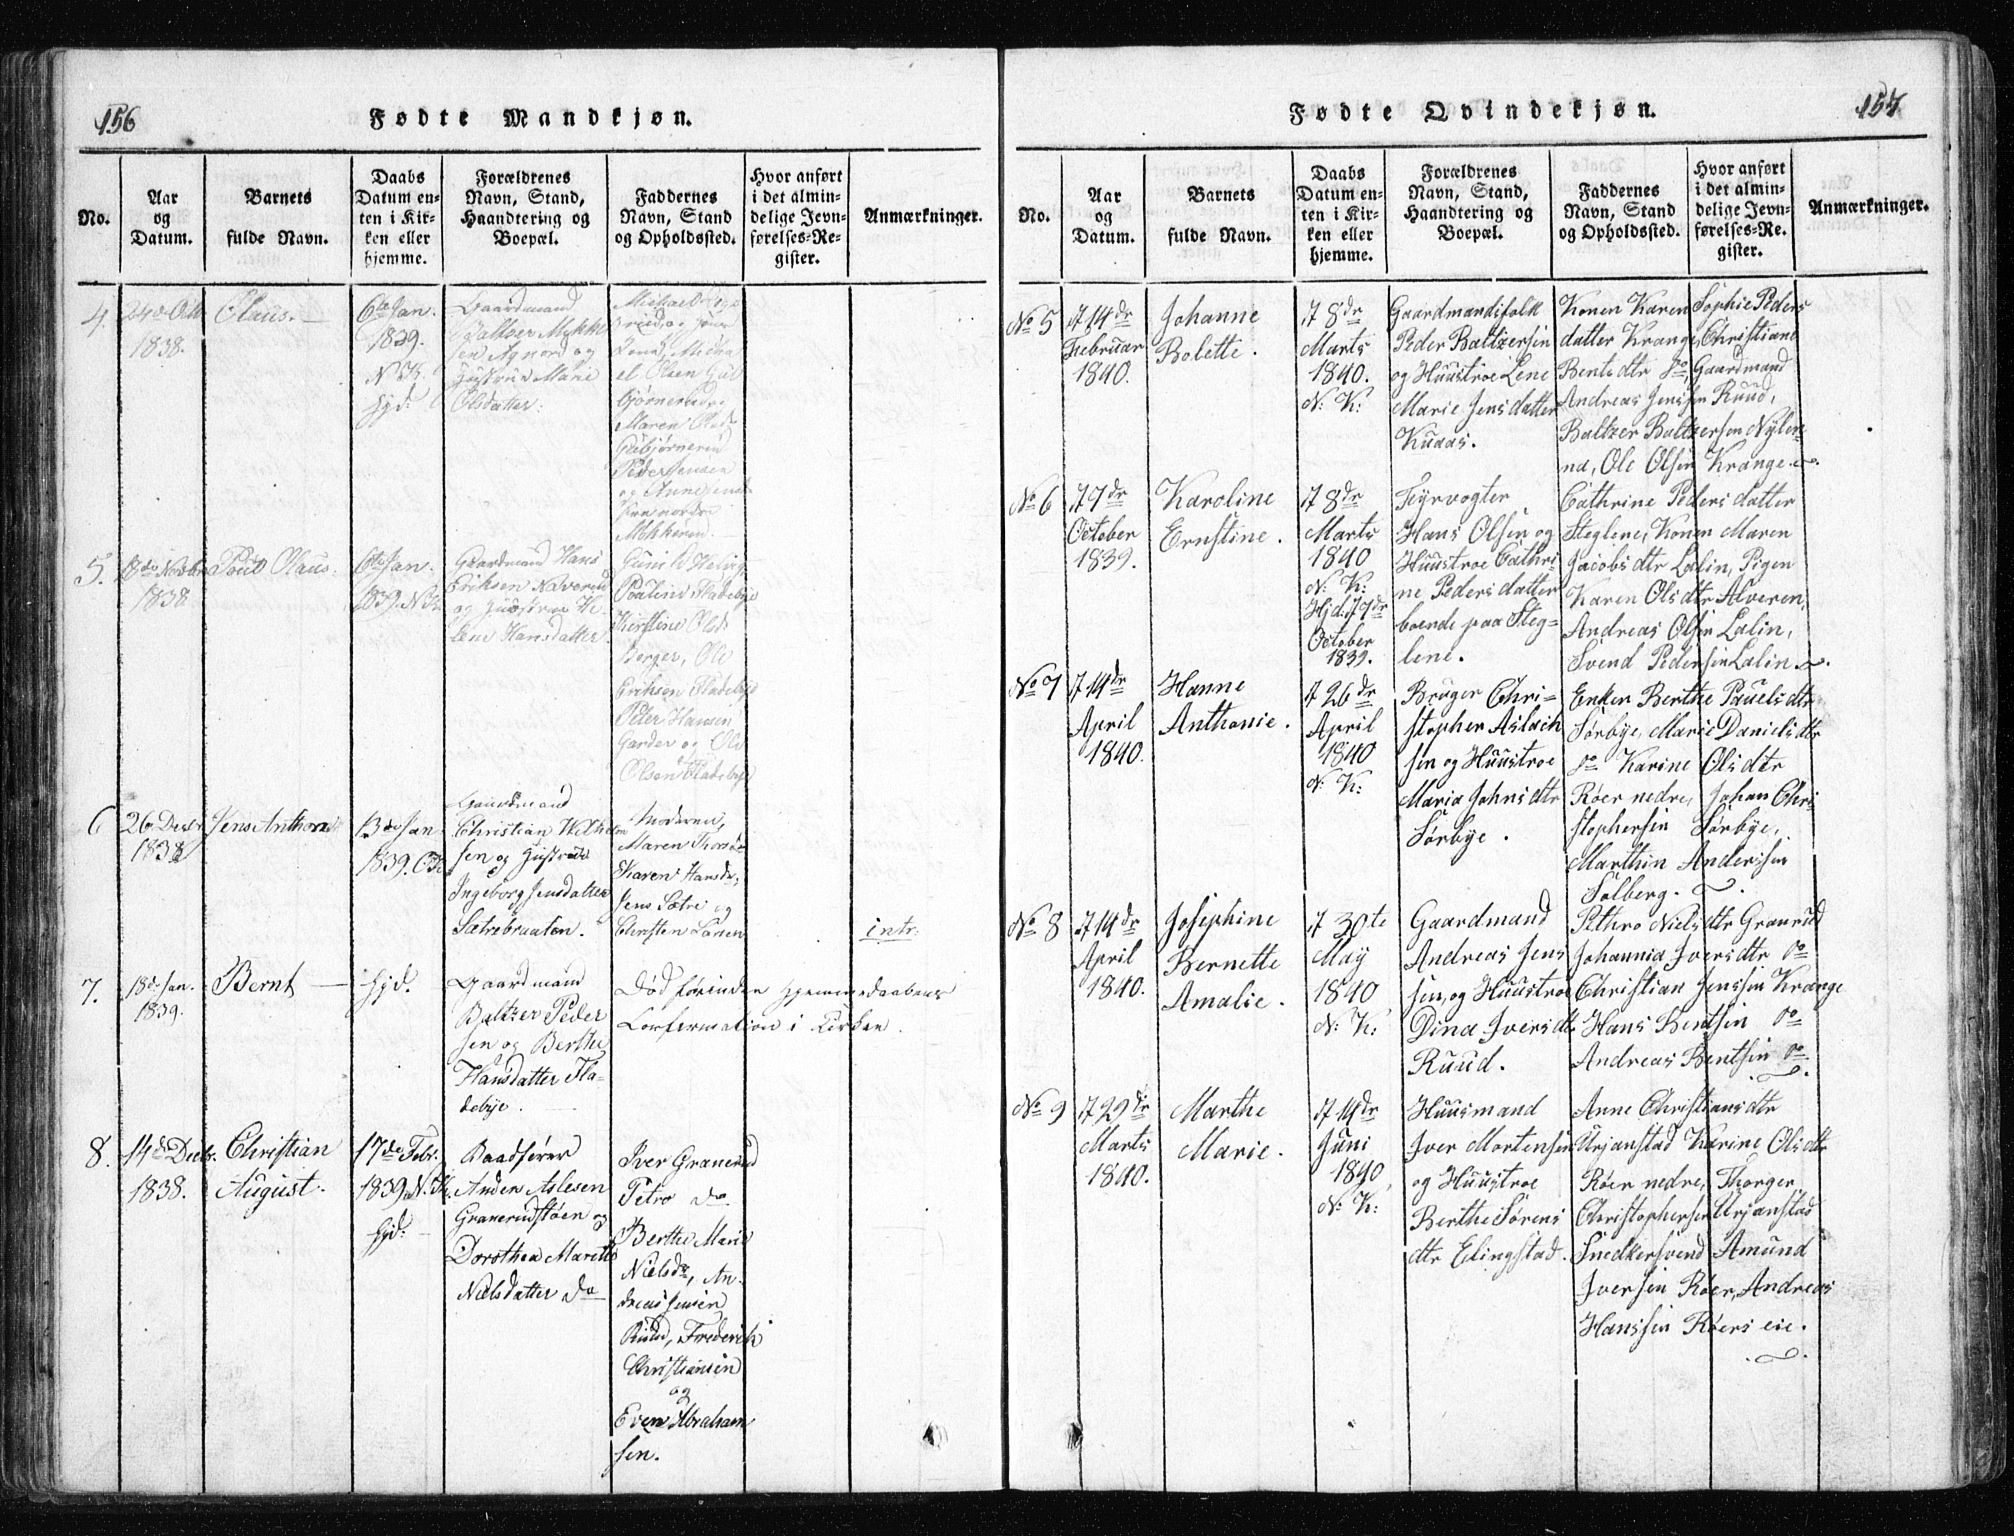 156
Fødte Mandkjøn.
No.
Aar
og
Datum.
Barnets
fulde Navn.
Daabs
Datum en-
ten i Kir-
ken eller
hjemme.
Forældrenes
Navn, Stand,
Haandtering og
Boepæl.
Faddernes
Navn, Stand
og Opholdssted.
Hvor anført
i det almin-
delige Jevn-
førelses-Re-
gister.
Anmærkninger.
4.
24de Octb
1838.
Claus.
6te Jan.
1839.
N.K.
Hjd.
Gaardmand
Baltzer Mekke
sen Agnord og
Hustrue Marie
Olsdatter.
Micha
el Olsen Gul
bjørnerud
Maren Olsd.
Gulbjørnerud
Peder Jensen
og Anne
nordre
5.
18de Novbr
1838
Poul Olaus.
6te Jan.
1839. N.K.
Gaardmand Hans
Eriksen Naverud
og Hustrue He-
lene Hansdatter.
Pauline Fladebye
Kirstine Olsd.
Berger, Ole
Eriksen Fladebye
Peter Hansen
Garder og Ole
Olsen Fladebye
6
26 Decbr
1838
Jens Anthon
13de Jan
1839.
Gaardmand
Christian Wilhelm
sen og Hustrue
Ingeborg Jensdatter
Sætrebraaten.
Moderen,
Maren
Karen Hansd.
Jens Sætre og
Christen Larsen
intr.
7.
18de Jan.
1839.
Bernt
Hjd.
Gaardmand
Baltzer Peder
sen og Berthe
Hansdatter Fla-
debye.
Død forinden Hjemmedaabens
Confirmation i Kirken.
8.
14de Decbr.
1838.
Christian
August.
17de Febr.
1839. N.K.
Hjd.
Baadfører
Anders Aslesen
Granerudstøen og
Dorothea Marethe
Nielsdatter do
Iver Granerud
Petro do
Berthe Marie
Nielsdr, An-
dreas Jensen
Ruud, Frederich
Christiansen
og
Even Abraham
sen.
157
Fødte Qvindekjøn.
No.
Aar
og
Datum.
Barnets
fulde Navn.
Daabs
Datum en-
ten i Kir-
ken eller
hjemme.
Forældrenes
Navn, Stand,
Haandtering og
Boepæl.
Faddernes
Navn, Stand
og Opholdssted.
Hvor anført
i det almin-
delige Jevn-
førelses-Re-
gister.
Anmærkninger.
No 5
d 14de
Februar
1840.
Johanne
Bolette.
d 8de
Marts
1840.
N: K:
Gaardmandsfolk
Peder Baltzersen
og Huustroe Lene
Marie Jensdatter
Knaas.
Konen Karen Sophie Peders
datter Krange, Christiane
Bentsdtr do, Gaardmand
Andreas Jenssen Ruud,
Baltzer Baltzersen Nylen-
na, Ole Olsen Krange.
No 6
d 7de
October
1839.
Karoline
Ernstine.
d 8de
Marts
1840
N: K:
Hjd. d 7de
October
1839.
Fyrvogter
Hans Olsen og
Huustroe Cathri-
ne Pedersdatter
boende paa Steg-
lene.
Cathrine Pedersdatter
Steglene, Konen Maren
Jacobsdtr Lalin, Pigen
Karen Olsdtr Alveren,
Andreas Olsen Lalin,
Svend Pedersen Lalin.
No 7
d 14de
April
1840.
Hanne
Anthonie.
d 26de
April
1840
N: K:
Bruger Chri-
stopher Aslach
sen og Huustroe
Maria Johnsdtr
Sørbye.
Enken Berthe Pauelsdtr
Sørbye, Marie Danielsdtr
do Karine Olsdtr
Røer nedre, Johan Chri-
stophersen Sørbye,
Marthin Anderssen
Solberg.
No 8
d 14de
April
1840.
Josephine
Bernette
Amalie.
d 30te
May
1840
N: K:
Gaardmand
Andreas Jens
sen, og Huustroe
Dina Iversdtr
Ruud.
Pethro Nielsdtr Granrud
Johannia Iversdtr do
Christian Jenssen Krange
Hans Bentsen do
Andreas Bentsen do
No 9
d 29de
Marts
1840.
Marthe
Marie.
d 14de
Juni
1840
N: K:
Huusmand
Iver Mortensen
og Huustroe
Berthe Sørens
dtr Elingstad.
Anne Christiansdtr
Urjanstad Karine Olsdtr
Røer nedre, Thorger
Christophersen Urjanstad
Snedkersvend Amund
Iversen Røer, Andreas
Hanssen Røers eie.